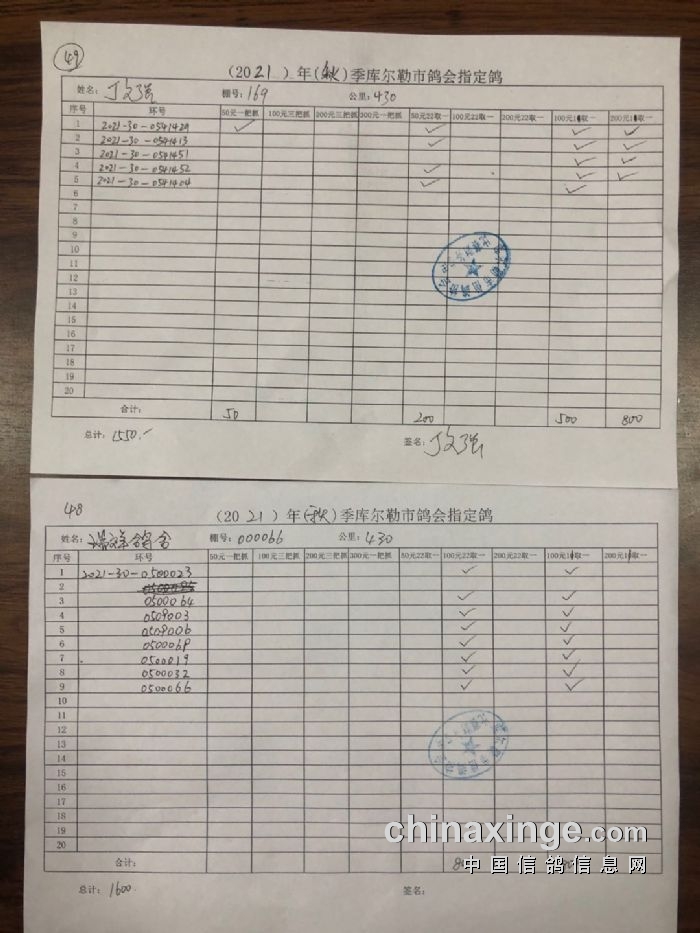 49
(2021)年(秋)季库尔勒市鸽会指定鸽
姓名: 丁文强 棚号: 169 公里: 430
序号 环号 50元一把抓 100元三把抓 200元三把抓 300元一把抓 50元22取一 100元22取一 200元22取一 100元10取一 200元10取一
1 2021-30-0541429 ✓ ✓ ✓ ✓
2 2021-30-0541413 ✓ ✓ ✓
3 2021-30-0541451 ✓ ✓
4 2021-30-0541452 ✓ ✓ ✓
5 2021-30-0541404 ✓ ✓
6
7
8
9
10
11
12
13
14
15
16
17
18
19
20
合计: 50 200 500 800
总计: 1550.- 签名: 丁文强
48
(2021)年(秋)季库尔勒市鸽会指定鸽
姓名: 瑞祥鸽舍 棚号: 000066 公里: 430
序号 环号 50元一把抓 100元三把抓 200元三把抓 300元一把抓 50元22取一 100元22取一 200元22取一 100元10取一 200元10取一
1 2021-30-0500023 ✓ ✓
2
3 0500064 ✓ ✓
4 0509003 ✓ ✓
5 0509006 ✓ ✓
6 0500068 ✓ ✓
7 0500019 ✓ ✓
8 0500032 ✓ ✓
9 0500066 ✓ ✓
10
11
12
13
14
15
16
17
18
19
20
合计:
总计: 1600. 签名:
chinaxinge.com
中国信鸽信息网